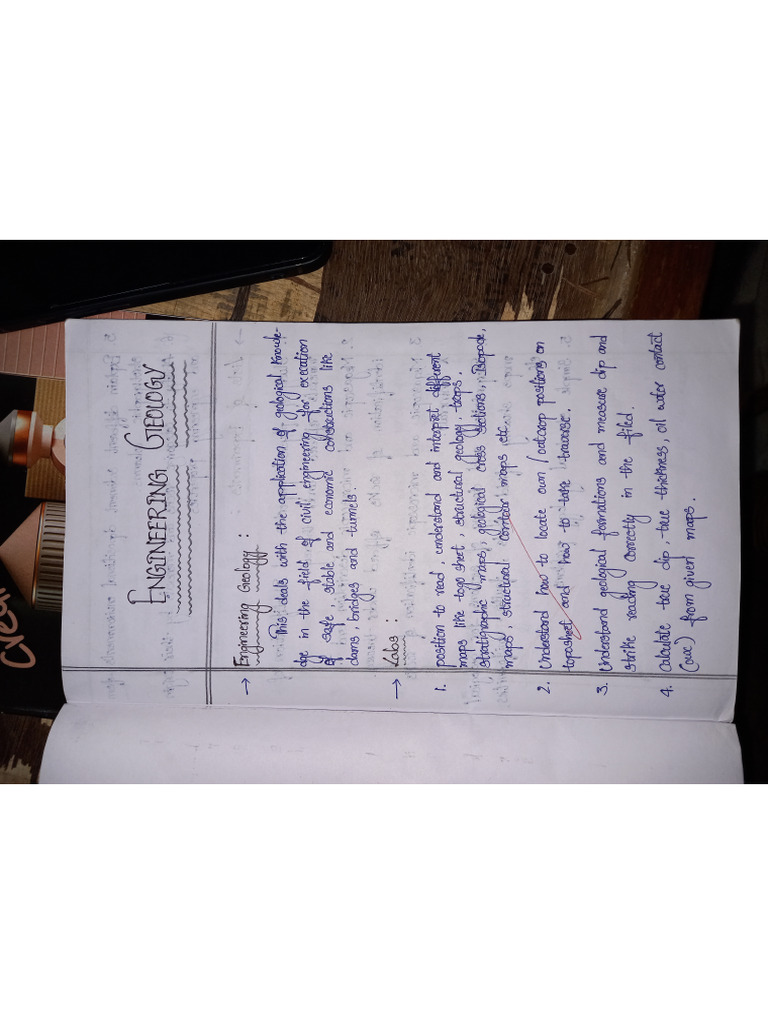 ENGINEERING GEOLOGY
→ Engineering Geology :
This deals with the application of geological knowle-
dge in the field of civil engineering for execation
of safe, stable and economic constractions like
dams, bridges and tunnels.
→ Labs :
1. position to read, understand and interpret different
maps like togo sheet, structural geology teops
stratigraphic maps, geological cross sections, Isopade,
maps, structural contour maps etc
2. Understand how to locate own/outcrop positions on
toposheet and how to take traverse.
3. Understand geological formations and measure dip and
strike reading correctly in the filed.
4. Calculate true dip, true thickness, oil water contact
(owc) from given maps.